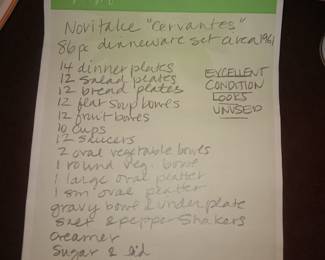 Noritake "Cervantes"
86pc dinnerware set circa 1961
14 dinner plates
12 salad plates
12 bread plates
12 flat soup bowls
12 fruit bowls
10 cups
12 saucers
2 oval vegetable bowls
1 round veg. bowl
1 large oval platter
1 sm oval platter
gravy bowl & underplate
salt & pepper shakers
creamer
sugar & lid
EXCELLENT
CONDITION
LOOKS
UNUSED